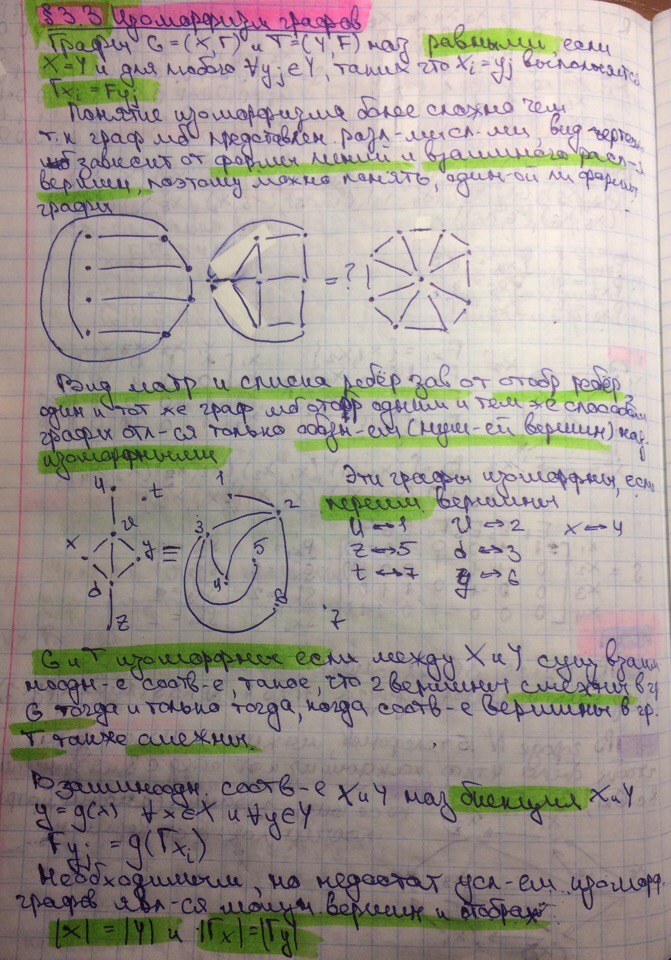 § 3.3 Изоморфизм графов
Графы G = (X, Г) и T = (Y, F) наз равными, если
X = Y и для любого ∀yj ∈ Y, таких что xi = yj выполняется
Гxi = Fyj
Понятие изоморфизма более сложно чем
т.к граф мб представлен разл-ми вид чертеж
зависит от формы линий и взаимного расп-я
вершин, поэтому можно понять, один-ой ли формы
графы
= ?
Вид матр и списка рёбер зав от отобр рёбер,
один и тот же граф мб отобр одним и тем же способом
графы отл-ся только обозн-ем (нум-ей вершин) наз.
изоморфными
Эти графы изоморфны, если
переим. вершины
u t v x y d z ≡ 1 2 3 4 5 6 7
u ↔ 1 v ↔ 2 x ↔ 4
z ↔ 5 d ↔ 3
t ↔ 7 y ↔ 6
G и T изоморфные если между X и Y сущ взаим
нооодн-е соотв-е, такое, что 2 вершины смежны в гр
G тогда и только тогда, когда соотв-е вершины в гр.
T также смежны.
Взаимноодн. соотв-е X и Y наз биекция X и Y
y = g(x) ∀x ∈ X и ∀y ∈ Y
Fyj = g(Гxi)
Необходимым, но недостат усл-ем изоморф.
графов явл-ся вершин и отображ
|X| = |Y| и |Гx| = |Гy|